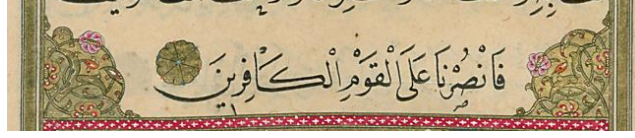 فَانْصُرْنَا عَلَى الْقَوْمِ الْكَافِرِينَ